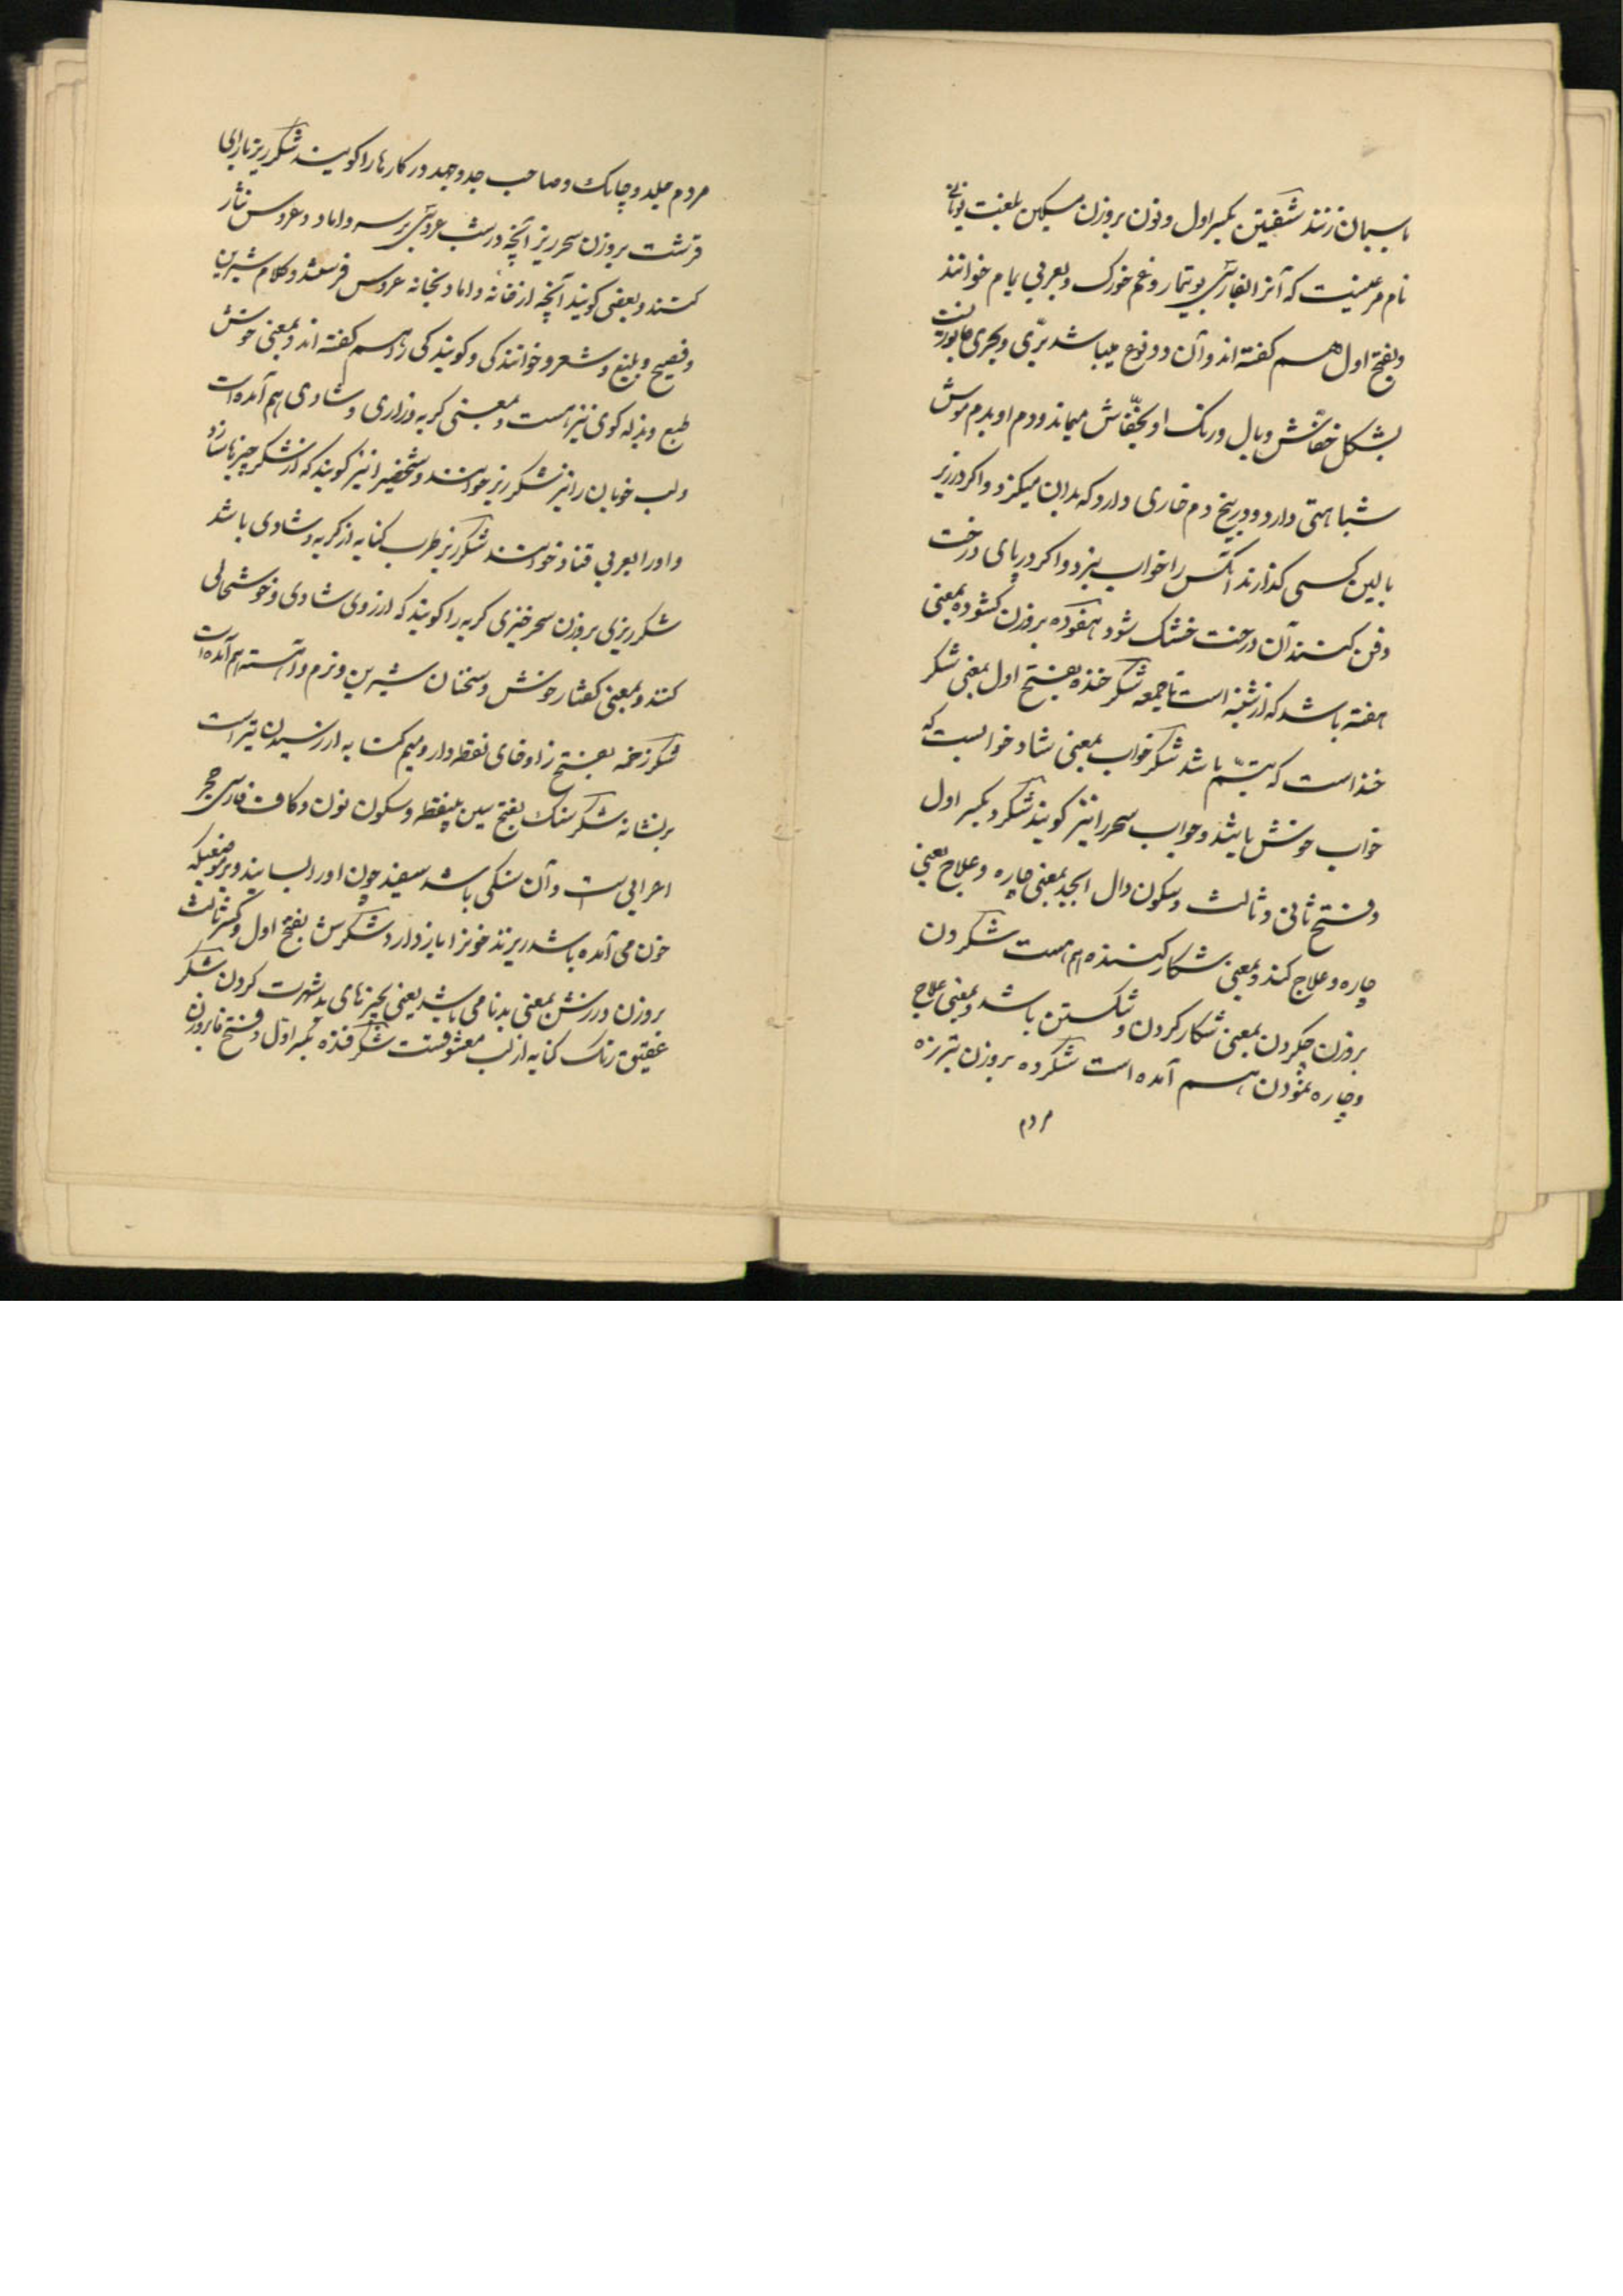 باسیمان زنند شفنین بکسر اول و نون بروزن مسکین بلغت یونانی
نام مرغیست که آنرا بفارسی بوتیمار و غم خورک و بعربی یمام خوانند
و بفتح اول هم گفته اند و آن دو نوع میباشد برّی و بحری
بشکل خفّاش و بال و رنگ او بخفّاش میماند و دم او بدم موش
شباهتی دارد و در بیخ دم خاری دارد که بدان میگزد و اگر در زیر
بالین کسی گذارند آنکس را خواب ببرد و اگر در پای درخت
دفن کنند آن درخت خشک شود هفوده بروزن کشوده بمعنی
هفته باشد که از شنبه است تا جمعه شکر خنده بفتح اول بمعنی شکر
خند است که تبسّم باشد شکر خواب بمعنی شاد خوابست که
خواب خوش باشد و خواب سحر را نیز گویند شکرد بکسر اول
و فتح ثانی و ثالث و سکون دال ابجد بمعنی چاره و علاج یعنی
چاره و علاج کند و بمعنی شکار کننده هم هست شکردن
بروزن جکردن بمعنی شکار کردن و شکستن باشد و بمعنی علاج
و چاره نمودن هم آمده است شکرده بروزن تبرزه
مردم
مردم جلد و چابک و صاحب جد و جهد در کارها را گویند شکر ریز بارای
قرشت بروزن سحر ریز آنچه در شب عروسی بر سر داماد و عروس نثار
کنند و بعضی گویند آنچه از خانه داماد بخانه عروس فرستند و کلام شیرین
و فصیح و بلیغ و شعر و خوانندگی و گویندگی را هم گفته اند و بمعنی خوش
طبع و بذله گوی نیز هست و بمعنی گریه و زاری و شادی هم آمده است
و لب خوبان را نیز شکر ریز خوانند و شخصی را نیز گویند که از شکر چیزها سازد
و او را بعربی قناد خوانند شکر ریز طرب کنایه از گریه و شادی باشد
شکر ریزی بروزن سحر خیزی گریه را گویند که از روی شادی و خوشحالی
کنند و بمعنی گفتار خوش و سخنان شیرین و نرم و آهسته هم آمده است
شکر زخمه بفتح زا و فای نقطه دار و میم کنایه از رسیدن تیر است
بر نشانه شکر سنگ بفتح سین بینقطه و سکون نون و کاف فارسی حجر
اعرابی است و آن سنگی باشد سفید چون او را بسایند و بر موضعیکه
خون می آمده باشد ریزند خونرا باز دارد شکرش بفتح اول و کسر ثالث
بروزن ورزش بمعنی بدنامی باشد یعنی بچیزهای بد شهرت کردن شکر
عقیق رنگ کنایه از لب معشوقست شکر فنده بکسر اول و فتح فا بروزن